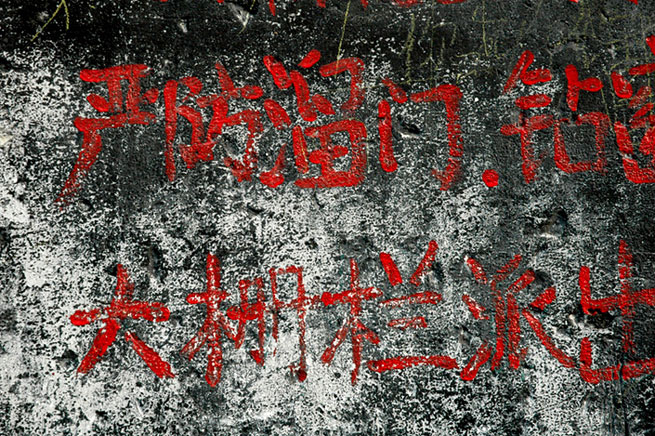 严防溜门.钻
大栅栏派出